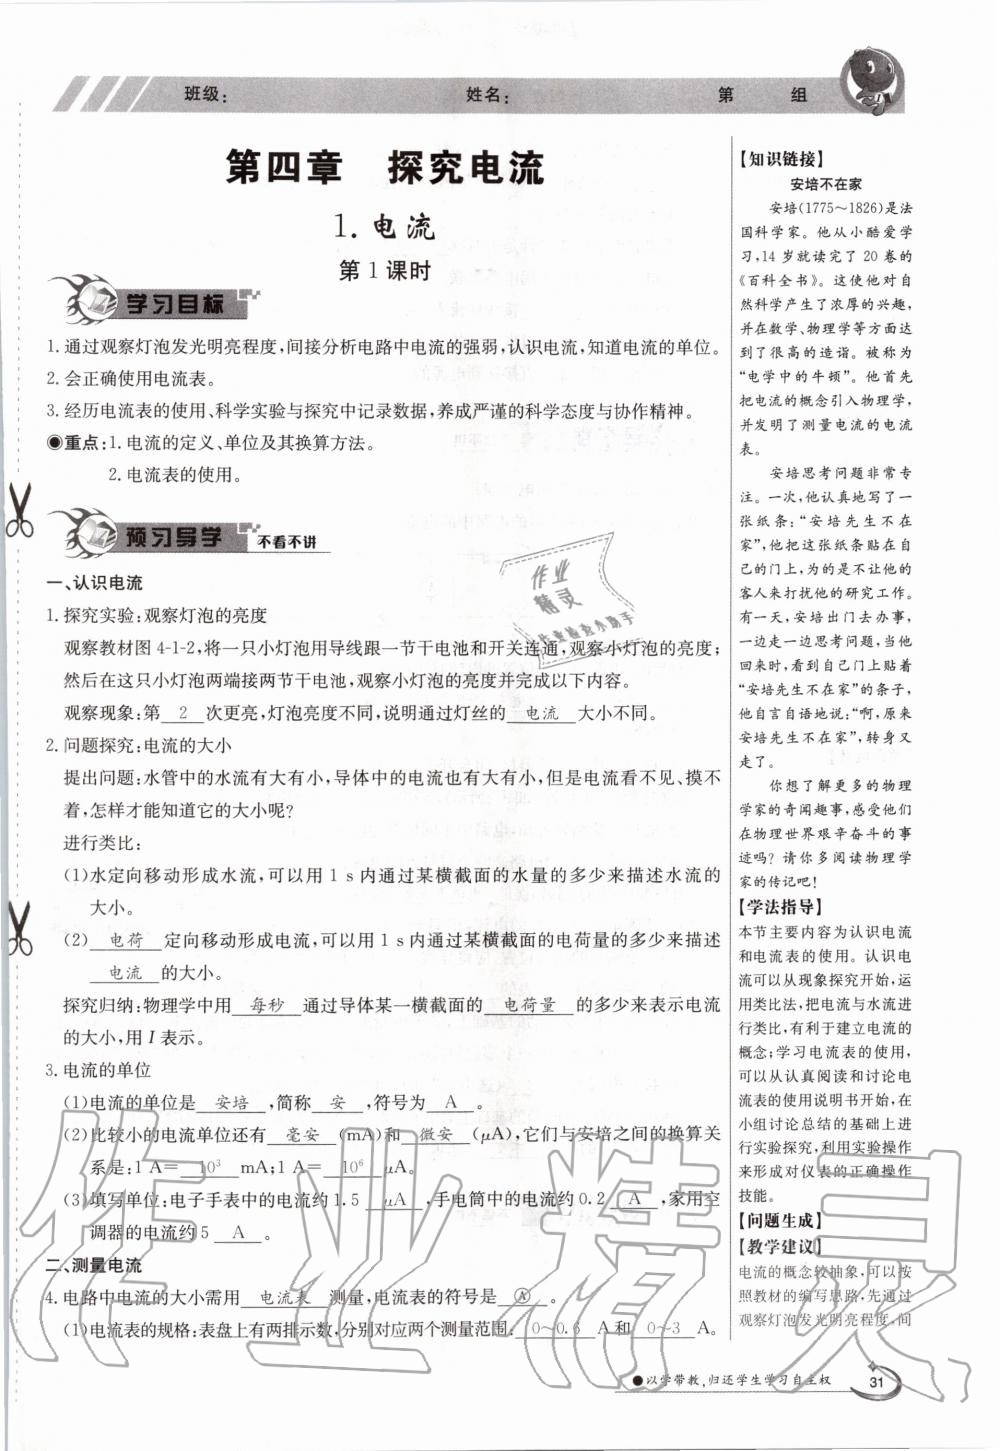 班级：
姓名：
第　　组
第四章　探究电流
1. 电流
第 1 课时
学习目标
1. 通过观察灯泡发光明亮程度,间接分析电路中电流的强弱,认识电流,知道电流的单位。
2. 会正确使用电流表。
3. 经历电流表的使用、科学实验与探究中记录数据,养成严谨的科学态度与协作精神。
◉重点:1. 电流的定义、单位及其换算方法。
2. 电流表的使用。
预习导学　不看不讲
一、认识电流
1. 探究实验:观察灯泡的亮度
观察教材图 4-1-2,将一只小灯泡用导线跟一节干电池和开关连通,观察小灯泡的亮度;
然后在这只小灯泡两端接两节干电池,观察小灯泡的亮度并完成以下内容。
观察现象:第 2 次更亮,灯泡亮度不同,说明通过灯丝的 电流 大小不同。
2. 问题探究:电流的大小
提出问题:水管中的水流有大有小,导体中的电流也有大有小,但是电流看不见、摸不
着,怎样才能知道它的大小呢?
进行类比:
(1)水定向移动形成水流,可以用 1 s 内通过某横截面的水量的多少来描述水流的
大小。
(2) 电荷 定向移动形成电流,可以用 1 s 内通过某横截面的电荷量的多少来描述
电流 的大小。
探究归纳:物理学中用 每秒 通过导体某一横截面的 电荷量 的多少来表示电流
的大小,用 I 表示。
3. 电流的单位
(1)电流的单位是 安培 ,简称 安 ,符号为 A 。
(2)比较小的电流单位还有 毫安 (mA)和 微安 (μA),它们与安培之间的换算关
系是:1 A= 10³ mA;1 A= 10⁶ μA。
(3)填写单位:电子手表中的电流约 1.5 μA ,手电筒中的电流约 0.2 A ,家用空
调器的电流约 5 A 。
二、测量电流
4. 电路中电流的大小需用 电流表 测量,电流表的符号是 Ⓐ 。
(1)电流表的规格:表盘上有两排示数,分别对应两个测量范围: 0～0.6 A 和 0～3 A。
【知识链接】
安培不在家
安培(1775～1826)是法
国科学家。他从小酷爱学
习,14 岁就读完了 20 卷的
《百科全书》。这使他对自
然科学产生了浓厚的兴趣,
并在数学、物理学等方面达
到了很高的造诣。被称为
“电学中的牛顿”。他首先
把电流的概念引入物理学,
并发明了测量电流的电流
表。
安培思考问题非常专
注。一次,他认真地写了一
张纸条:“安培先生不在
家”,他把这张纸条贴在自
己的门上,为的是不让他的
客人来打扰他的研究工作。
有一天,安培出门去办事,
一边走一边思考问题,当他
回来时,看到自己门上贴着
“安培先生不在家”的条子,
他自言自语地说:“啊,原来
安培先生不在家”,转身又
走了。
你想了解更多的物理
学家的奇闻趣事,感受他们
在物理世界艰辛奋斗的事
迹吗? 请你多阅读物理学
家的传记吧!
【学法指导】
本节主要内容为认识电流
和电流表的使用。认识电
流可以从现象探究开始,运
用类比法,把电流与水流进
行类比,有利于建立电流的
概念;学习电流表的使用,
可以从认真阅读和讨论电
流表的使用说明书开始,在
小组讨论总结的基础上进
行实验探究,利用实验操作
来形成对仪表的正确操作
技能。
【问题生成】
【教学建议】
电流的概念较抽象,可以按
照教材的编写思路,先通过
观察灯泡发光明亮程度,间
●以学带教,归还学生学习自主权
31
作业
精灵
作业精灵